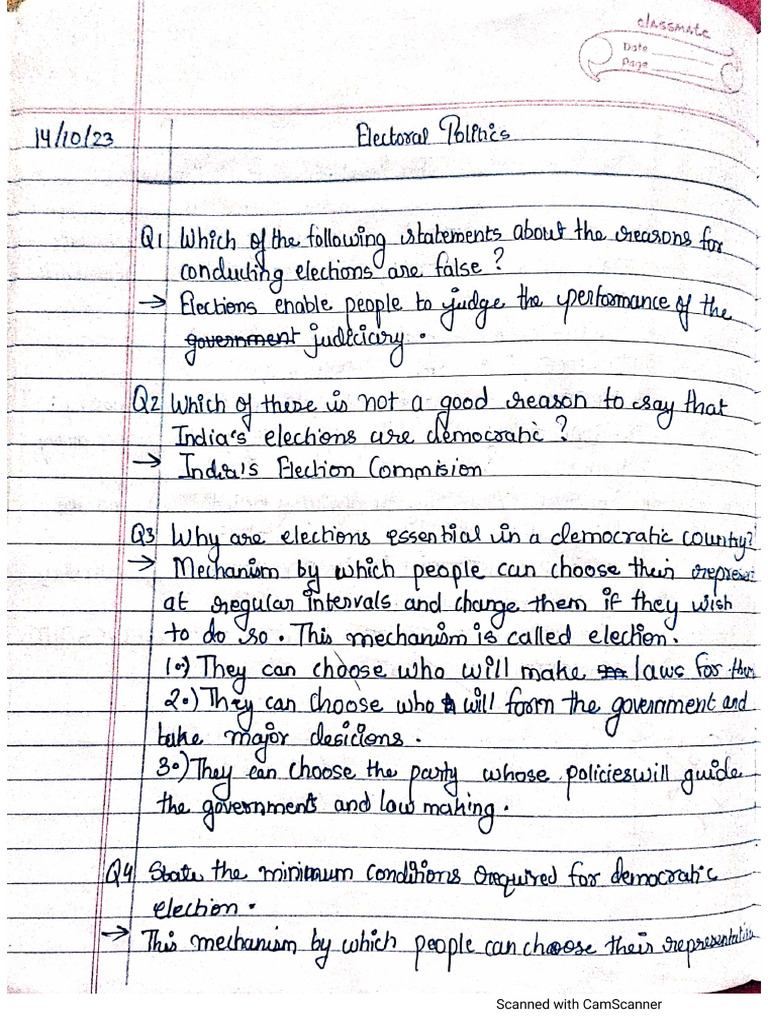 classmate
Date
Page
14/10/23 Electoral Politics
Q1 Which of the following statements about the reasons for
conducting elections are false?
→ Elections enable people to judge the performance of the
government judiciary.
Q2 Which of these is not a good reason to say that
India's elections are democratic?
→ India's Election Commision
Q3 Why are elections essential in a democratic country?
→ Mechanism by which people can choose their
at regular intervals and change them if they wish
to do so. This mechanism is called election.
1.) They can choose who will make laws for them
2.) They can choose who will form the government and
take major desicions.
3.) They can choose the party whose policies will guide
the government and law making.
Q4 State the minimum conditions required for democratic
election.
→ This mechanism by which people can choose their representative
Scanned with CamScanner